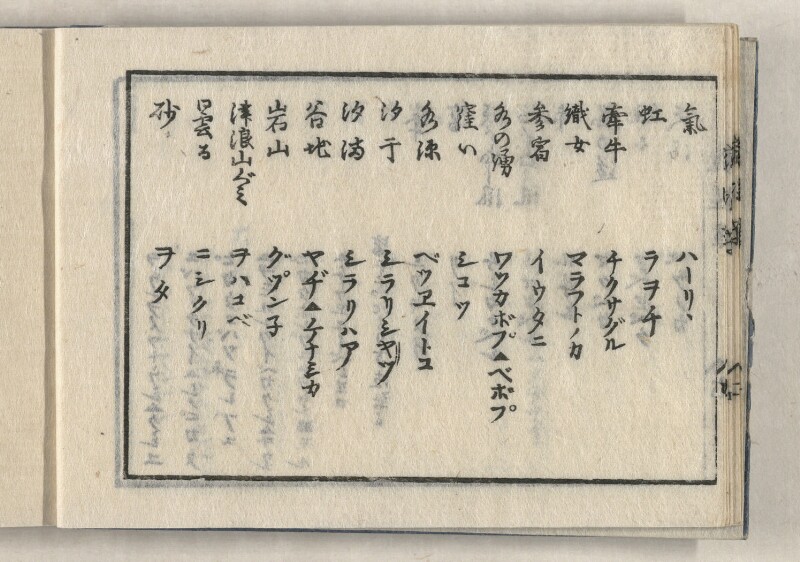 氣 ハーリヽ
虹 ラヲチ
牽牛 チクサグル
織女 マラフトノカ
參宿 イウタニ
水の湧 ワツカボプ▲ベボプ
窪い シコツ
水源 ベツヱイトコ
汐干 ミラリシヤツ
汐満 ミラリハア
谷地 ヤヂ▲ケナシカ
岩山 グツン子
津浪山ぐミ ヲハコベ
曇る ニシクリ
砂 ヲタ